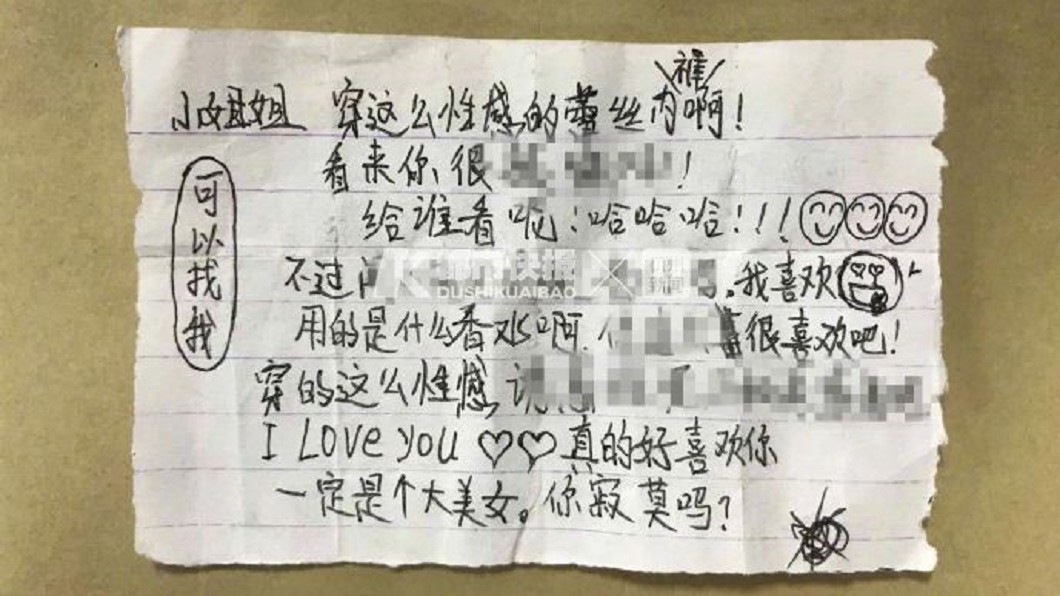 小姐姐 穿这么性感的蕾丝内裤啊!
看来你很!
给谁看呢!哈哈哈!!!
不过 我喜欢
用的是什么香水啊. 很喜欢吧!
穿的这么性感,
I Love you ♡♡真的好喜欢你
一定是个大美女。你寂寞吗?
可以找我
都市快报
DUSHIKUAIBAO